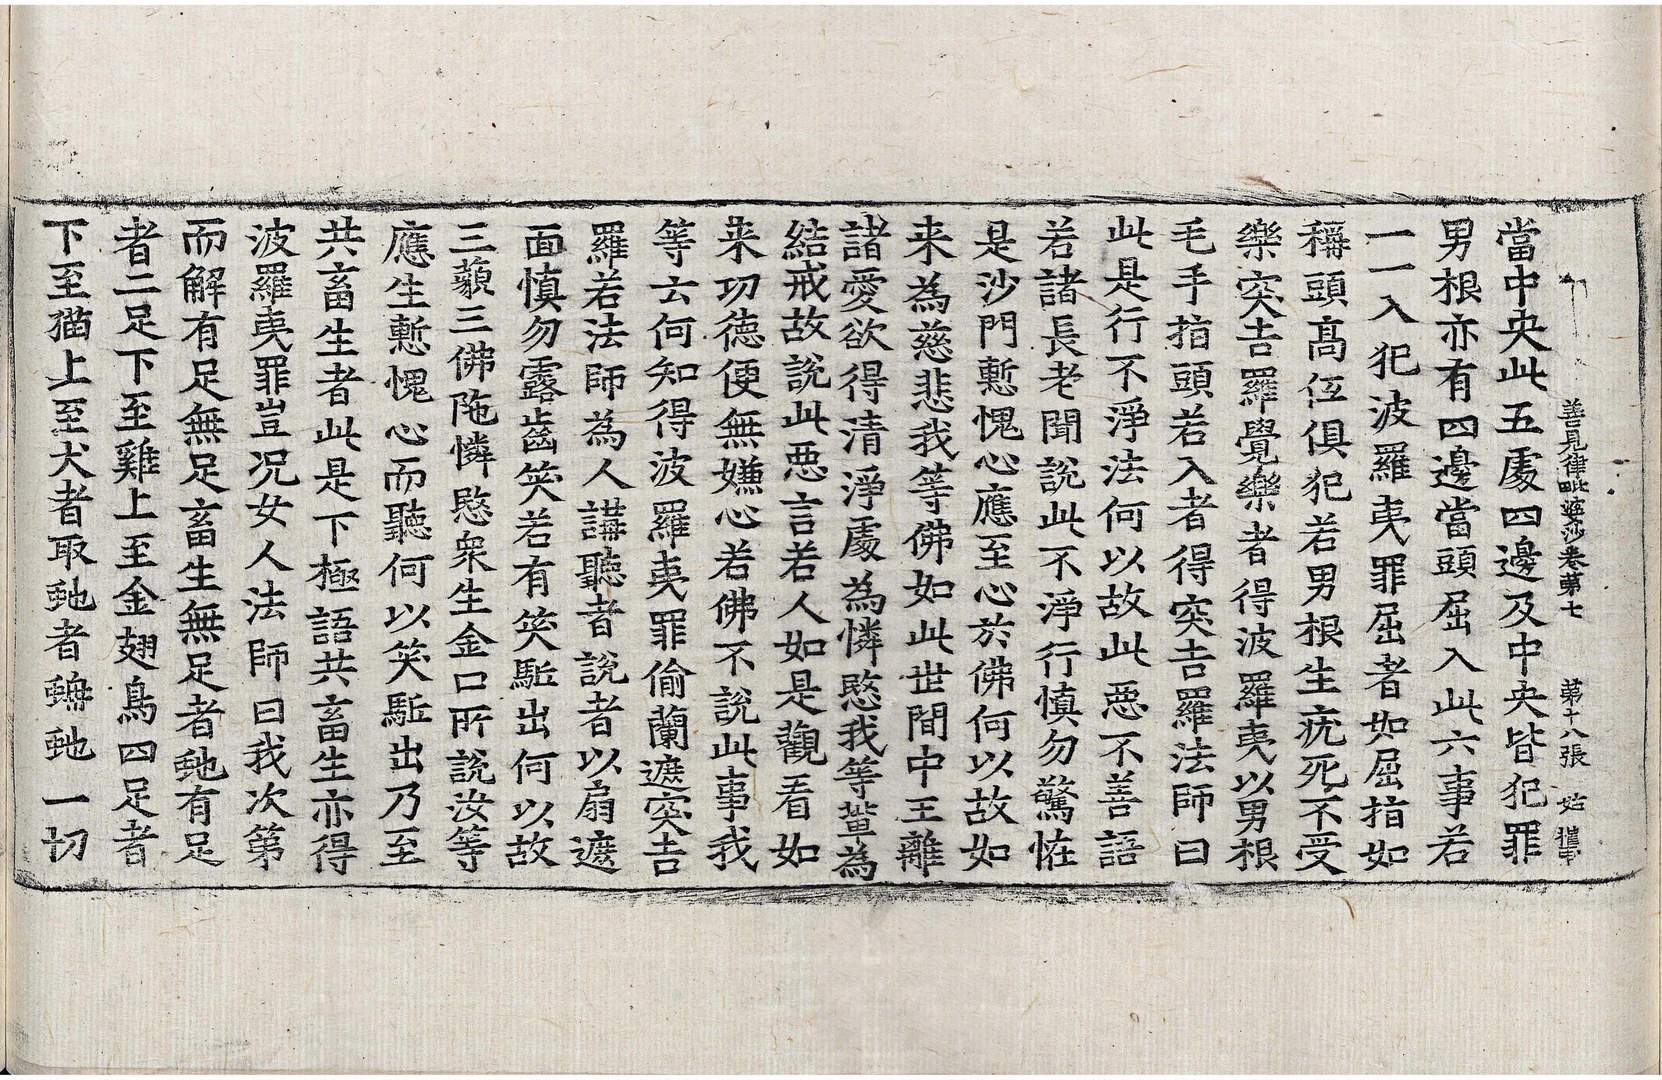 善見律毗婆沙卷第七 第十八張 姑
當中央此五處四邊及中央皆犯罪
男根亦有四邊當頭屈入此六事若
一一入犯波羅夷罪屈者如屈指如
稱頭髙伍俱犯若男根生疣死不受
樂突吉羅覺樂者得波羅夷以男根
毛手指頭若入者得突吉羅法師曰
此是行不淨法何以故此惡不善語
若諸長老聞說此不淨行慎勿驚恠
是沙門慙愧心應至心於佛何以故如
来為慈悲我等佛如此世間中王離
諸愛欲得清淨處為憐愍我等輩為
結戒故說此惡言若人如是觀看如
来功德便無嫌心若佛不說此事我
等云何知得波羅夷罪偷蘭遮突吉
羅若法師為人講聽者說者以扇遮
面慎勿露齒笑若有笑駈出何以故
三藐三佛陁憐愍衆生金口所說汝等
應生慙愧心而聽何以笑駈出乃至
共畜生者此是下極語共畜生亦得
波羅夷罪豈况女人法師曰我次第
而解有足無足畜生無足者虵有足
者二足下至雞上至金翅鳥四足者
下至猫上至犬者取虵者 虵一切